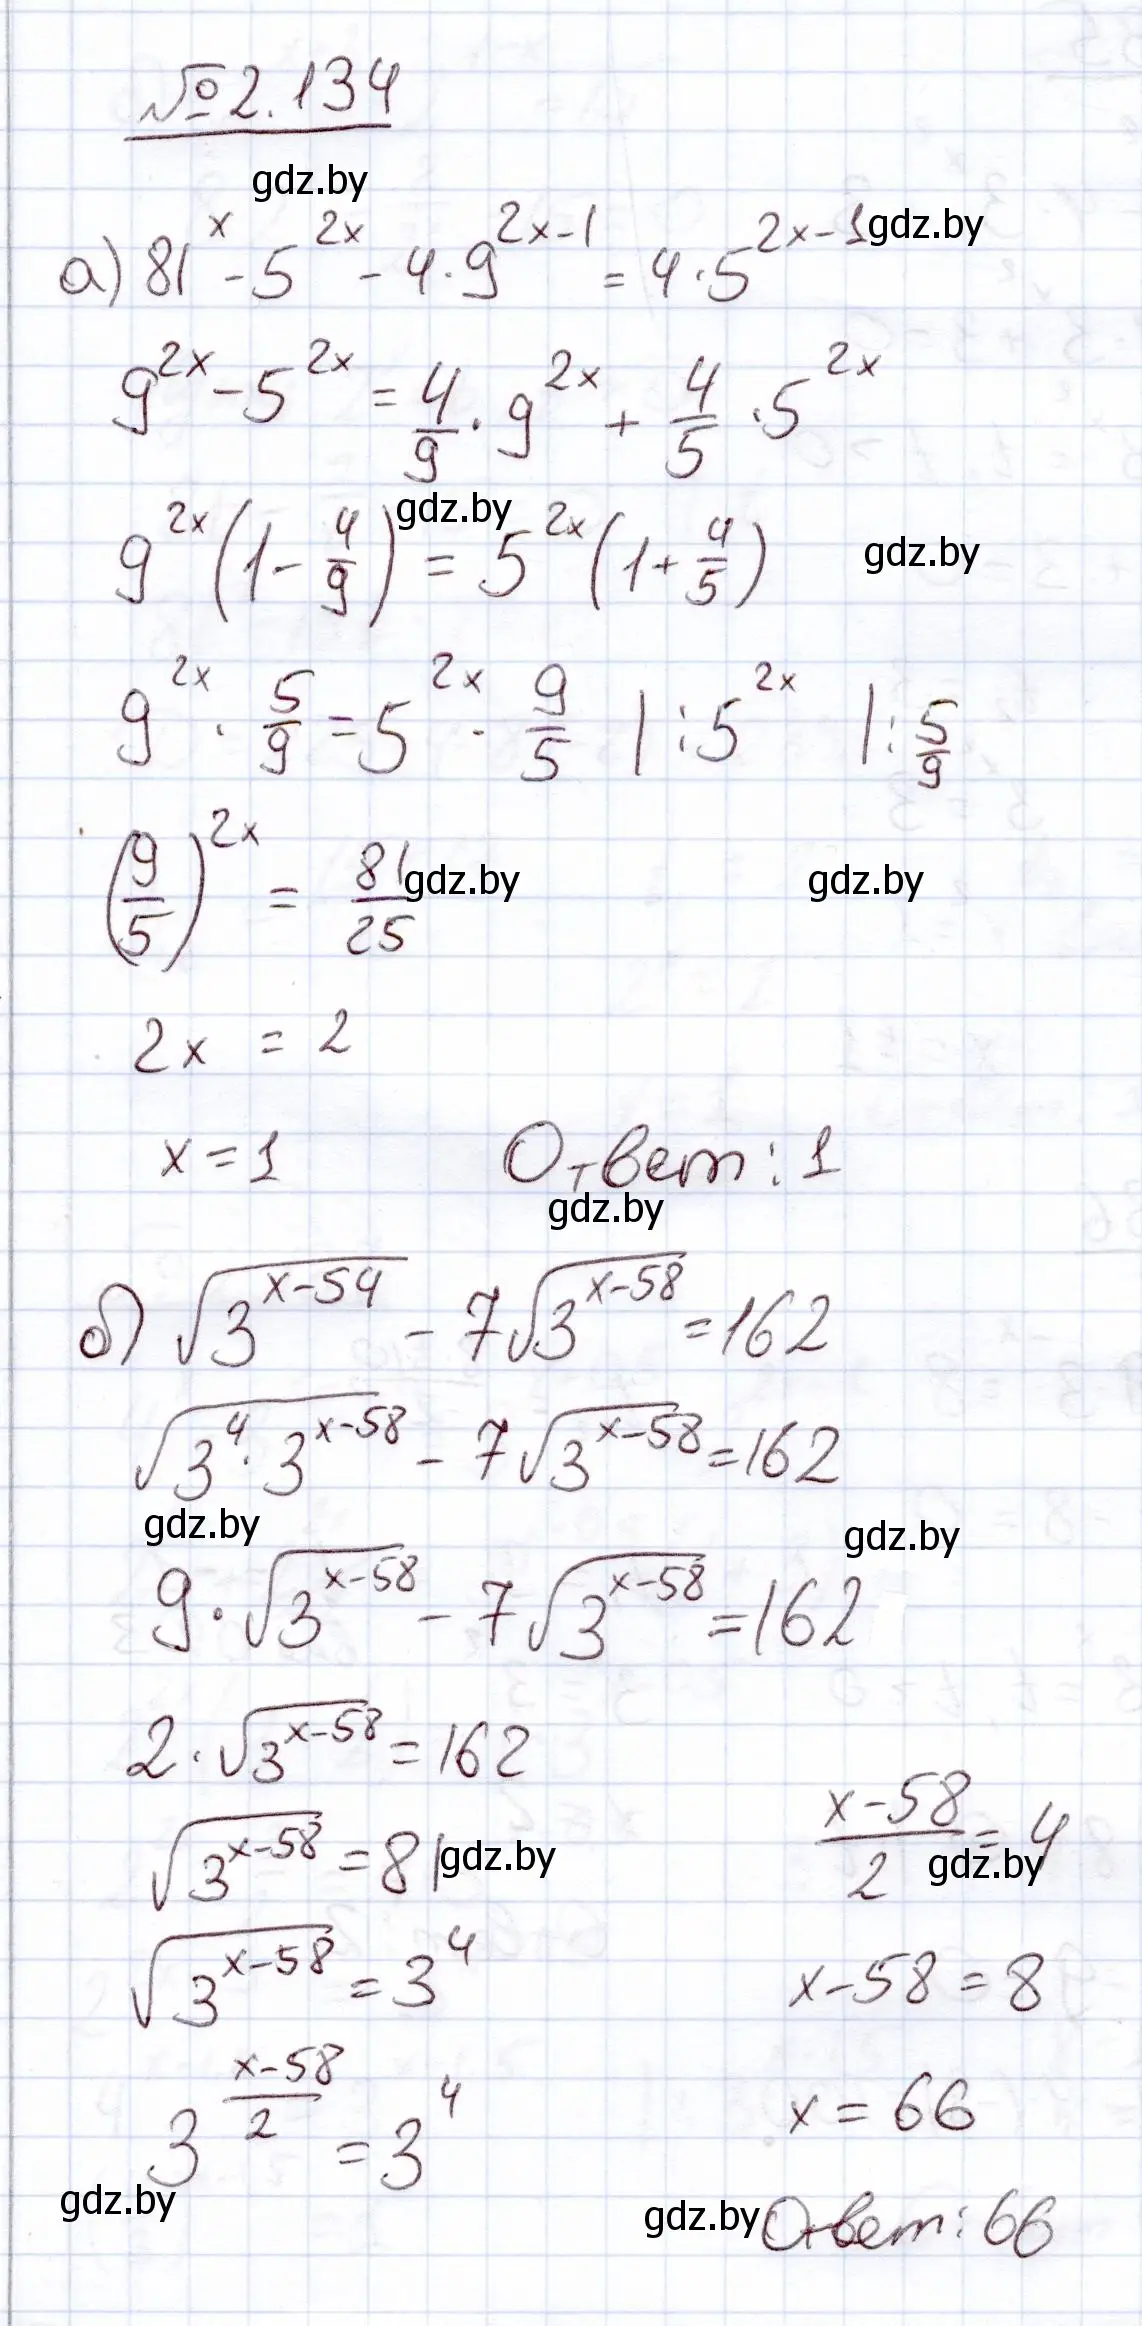 №2.134
gdz.by
а) 81^x - 5^{2x} - 4·9^{2x-1} = 4·5^{2x-1} gdz.by
9^{2x} - 5^{2x} = 4/9 · 9^{2x} + 4/5 · 5^{2x}
gdz.by
9^{2x} (1 - 4/9) = 5^{2x} (1 + 4/5) gdz.by
9^{2x} · 5/9 = 5^{2x} · 9/5 |:5^{2x} |:5/9
(9/5)^{2x} = 81/25 gdz.by gdz.by
2x = 2
x = 1 Ответ: 1
gdz.by
б) √(3^{x-54}) - 7√(3^{x-58}) = 162
√(3^4 · 3^{x-58}) - 7√(3^{x-58}) = 162
gdz.by gdz.by
9·√(3^{x-58}) - 7√(3^{x-58}) = 162
2·√(3^{x-58}) = 162
√(3^{x-58}) = 81 gdz.by
√(3^{x-58}) = 3^4
3^{(x-58)/2} = 3^4
gdz.by
(x-58)/2 = 4
gdz.by
x - 58 = 8
x = 66
gdz.by Ответ: 66